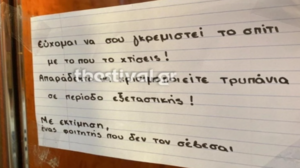 Εύχομαι να σου γκρεμιστεί το σπίτι
με το που το χτίσεις!
thestival.gr
τρυπάνια
σε περίοδο εξεταστικής!
Με εκτίμηση,
ένας φοιτητής που δεν τον σέβεσαι